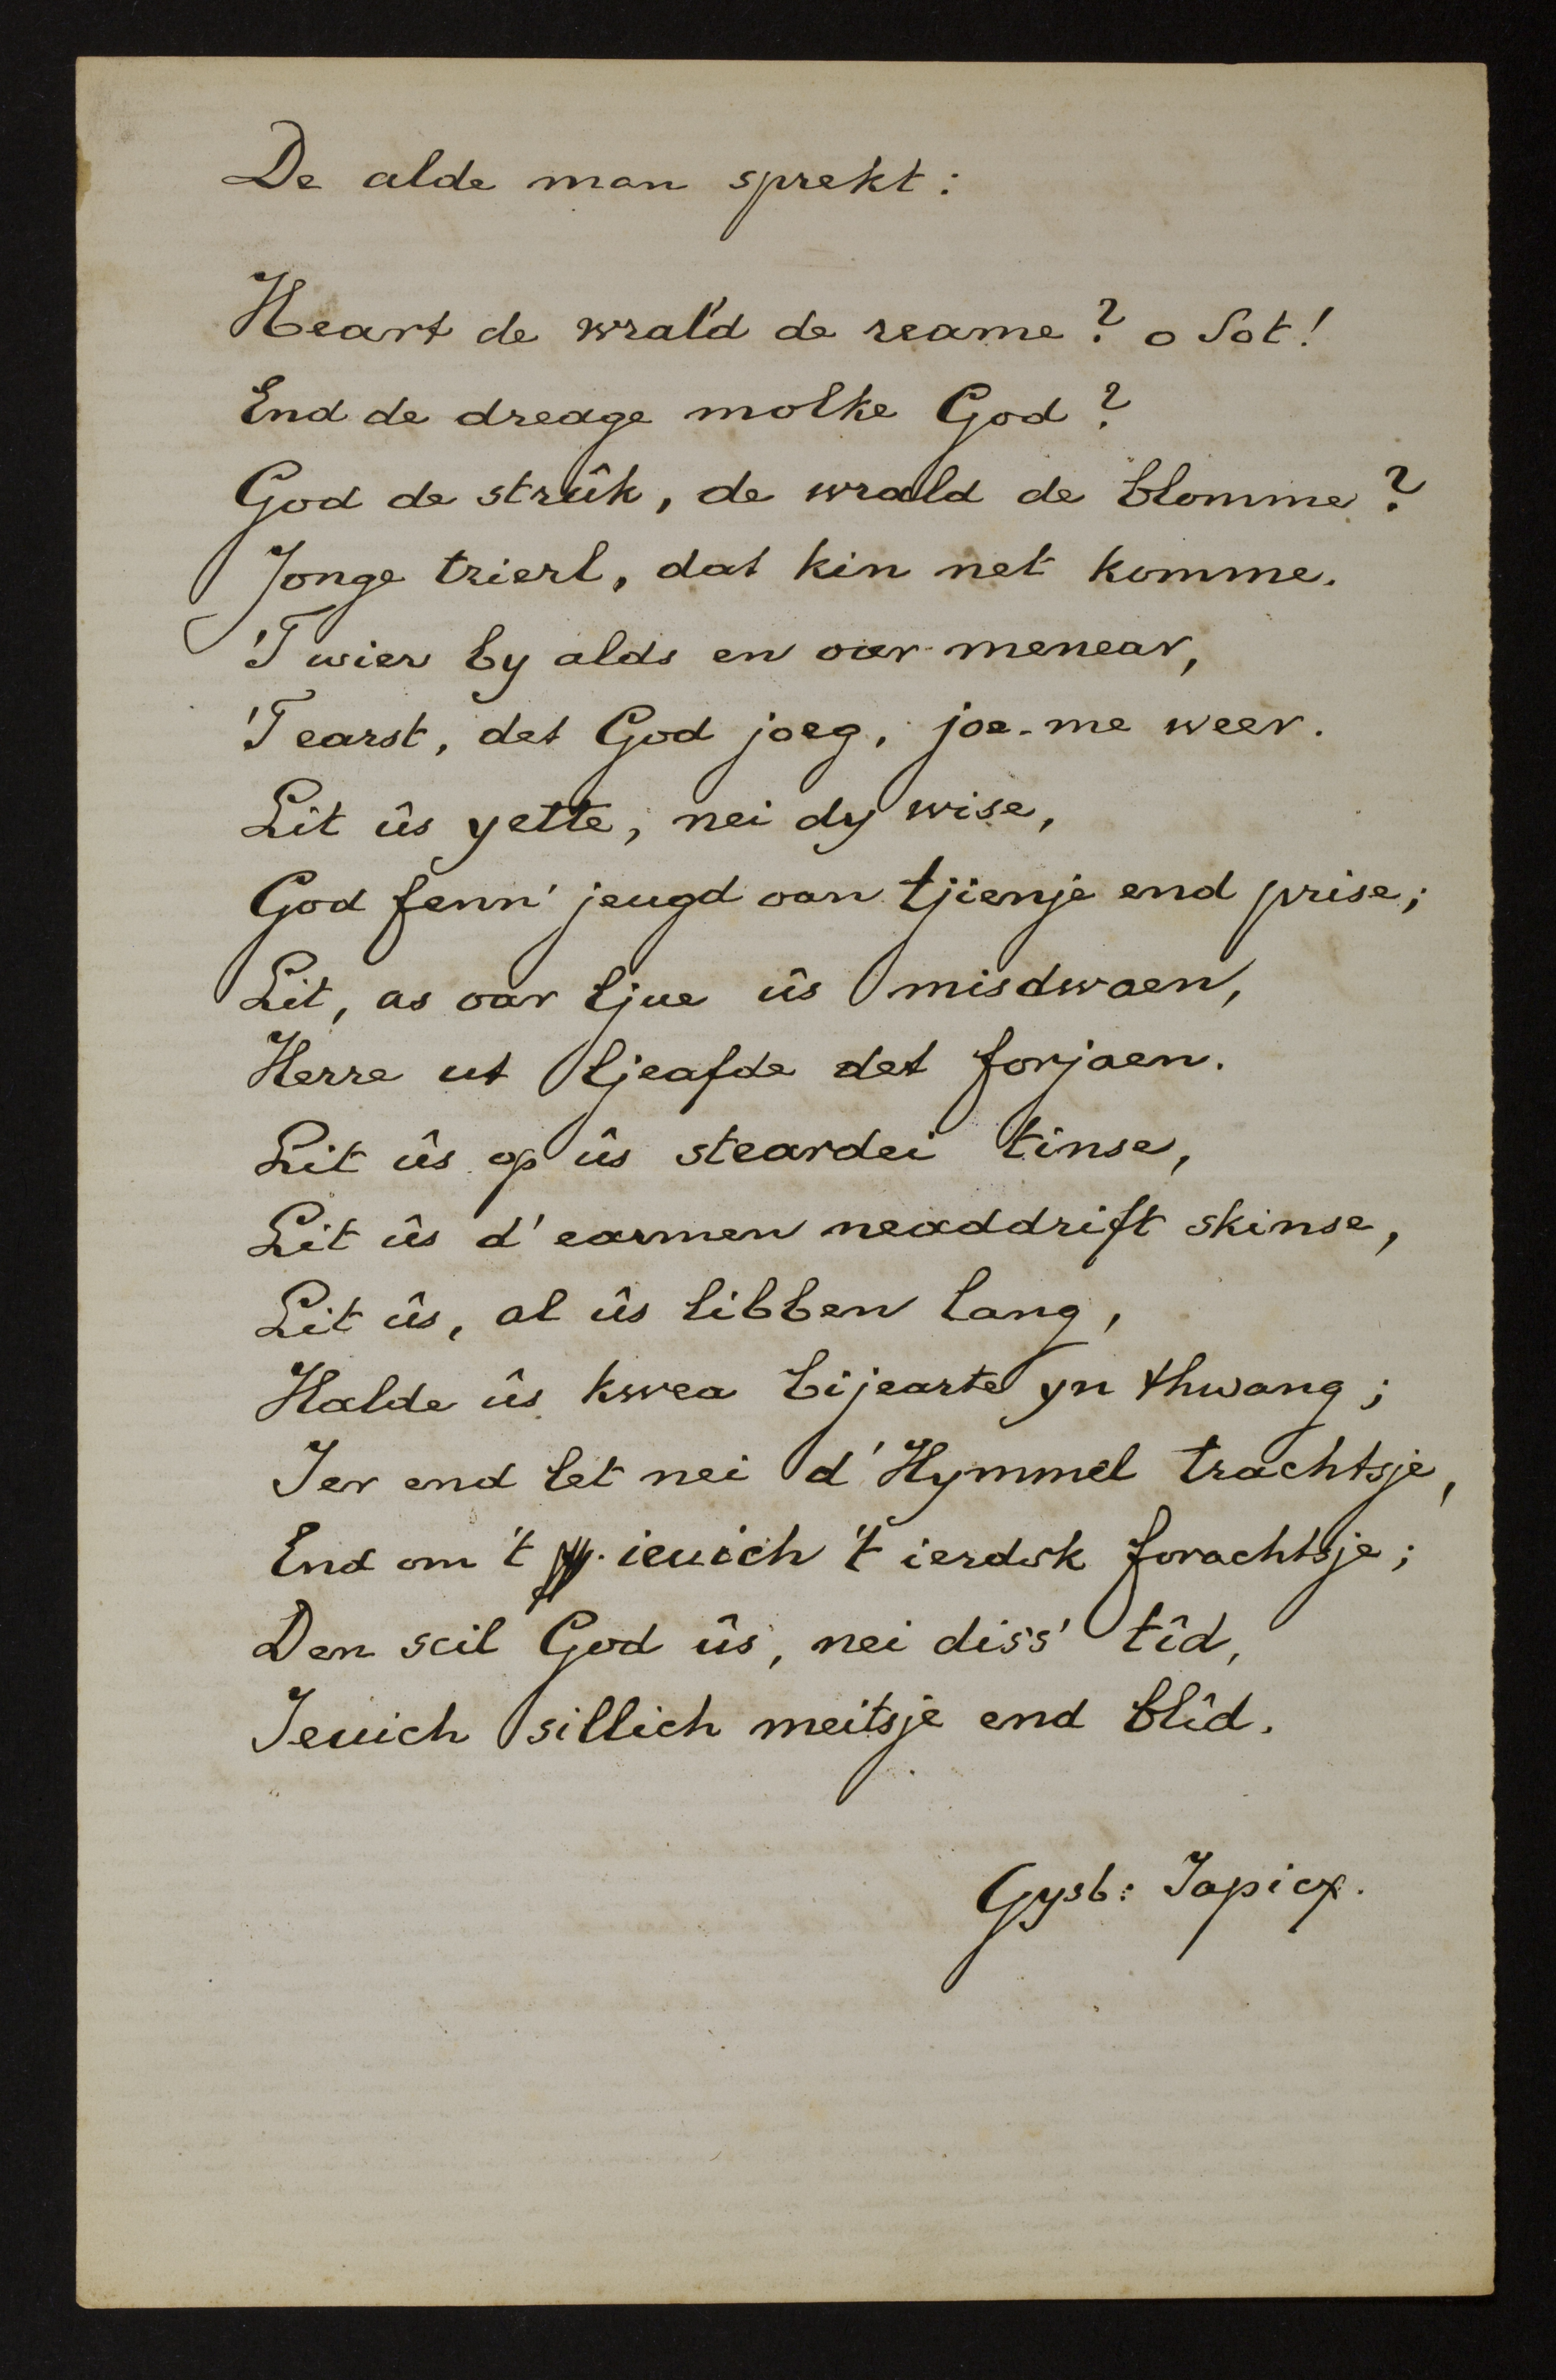 De alde man sprekt:
Heart de wrald de reame? o Sot!
End de dreage molke God?
God de strûk, de wrald de blomme?
Jonge trierl, dat kin net komme.
'T wier by alds en oar menear,
'T earst, det God joeg, joe-me weer.
Lit ûs yette, nei dy wise,
God fenn' jeugd oan tjienje end prise;
Lit, as oar ljue ûs misdwaen,
Herre ut ljeafde det forjaen.
Lit ûs op ûs steardei tinse,
Lit ûs d' earmen neaddrift skinse,
Lit ûs, al ûs libben lang,
Halde ûs kwea bijearte yn thwang;
Ier end let nei d' Hymmel trachtsje,
End om 't ieuich 't ierdsk forachtsje;
Den scil God ûs, nei diss' tîd,
Ieuich sillich meitsje end blîd.
Gysb: Japicx.